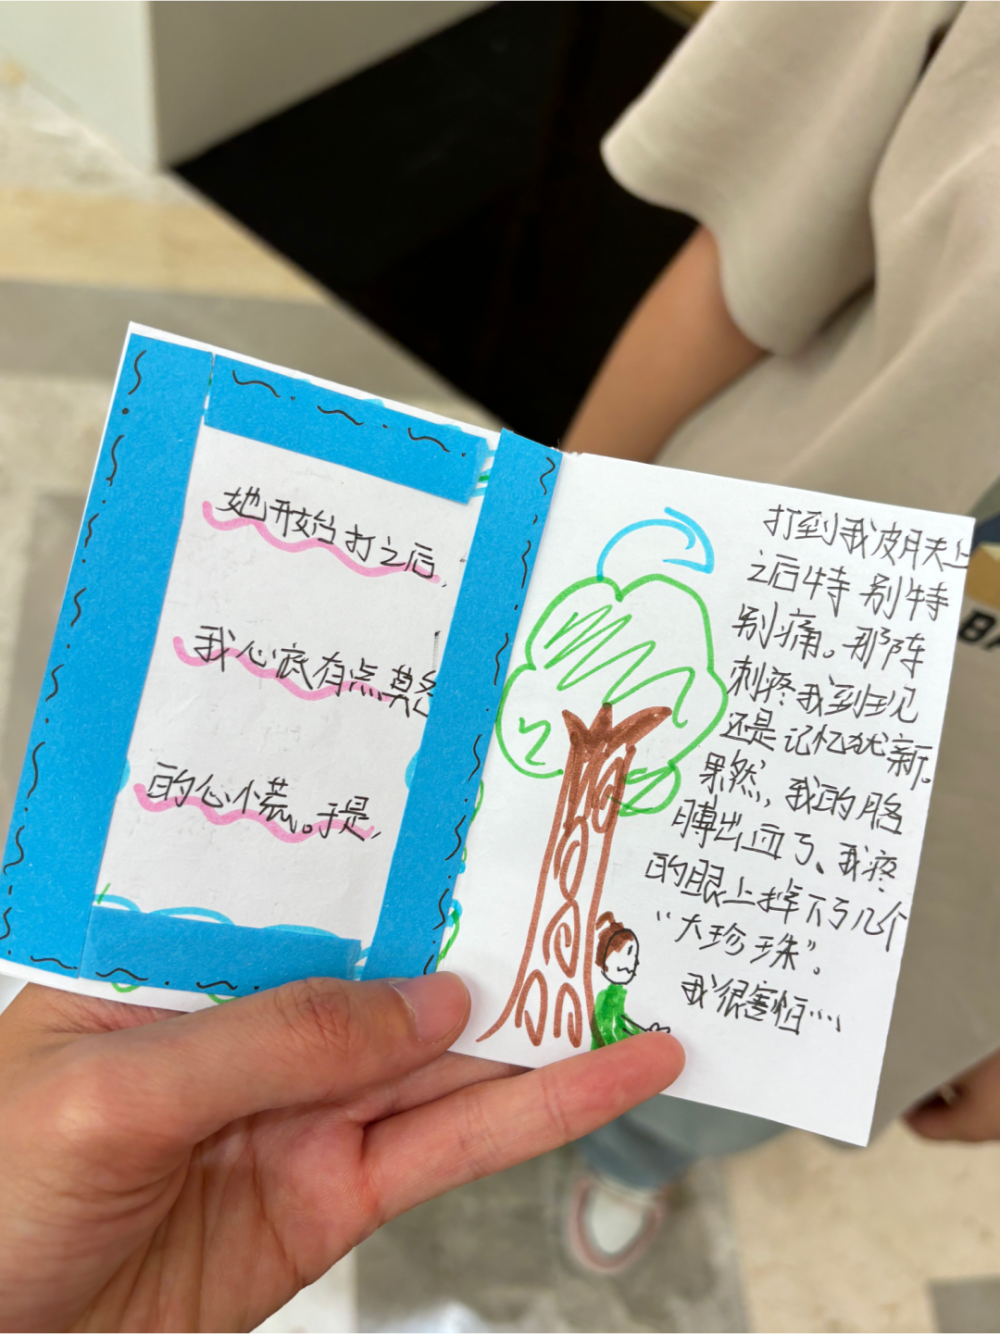 她开始打之后,
我心底有点莫名
的心小慌。于是,
打到我皮肤上
之后特别特
别痛。那阵
刺疼我到现
还是记忆犹新。
果然,我的胳
膊出血了、我疼
的眼上掉下了几个
“大珍珠”。
我很害怕····